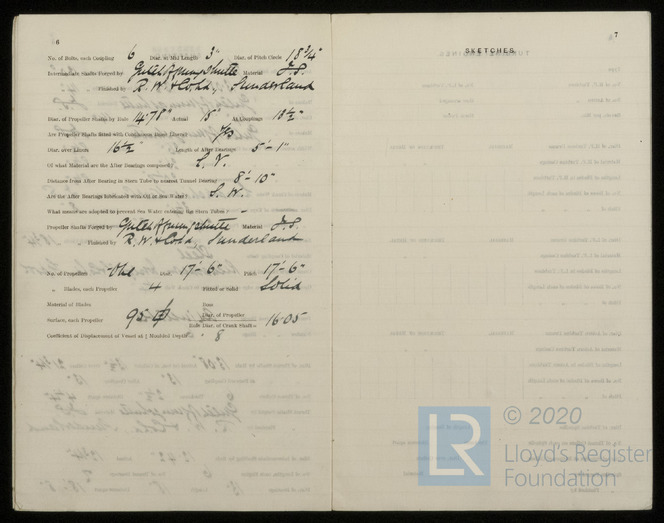 6
No. of Bolts, each Coupling 6 Diar. at Mid Length 3" Diar. of Pitch Circle 18 3/4"
Intermediate Shafts Forged by Material I.S.
Finished by R. W. & Co. Ld., Sunderland
Diar. of Propeller Shafts by Rule 14.78" Actual 15" At Couplings
Are Propeller Shafts fitted with Continuous Brass Liners? Yes
Diar. over Liners 16 1/2" Length of After Bearings 5'-1"
Of what Material are the After Bearings composed? L. V.
Distance from After Bearing in Stern Tube to nearest Tunnel Bearing 8'-10"
Are the After Bearings lubricated with Oil or Sea Water? S. W.
What means are adopted to prevent Sea Water entering the Stern Tubes? -
Propeller Shafts Forged by Material I.S.
Finished by R. W. & Co Ld. Sunderland
No. of Propellers One Diar. 17'-6" Pitch 17'-6"
" Blades, each Propeller 4 Fitted or Solid Solid
Material of Blades Boss
Surface, each Propeller 95 Diar. of Propeller 16.05
Diar. of Crank Shaft
Coefficient of Displacement of Vessel at 3/4 Moulded Depth .8
7
SKETCHES
LR © 2020
Lloyd's Register
Foundation